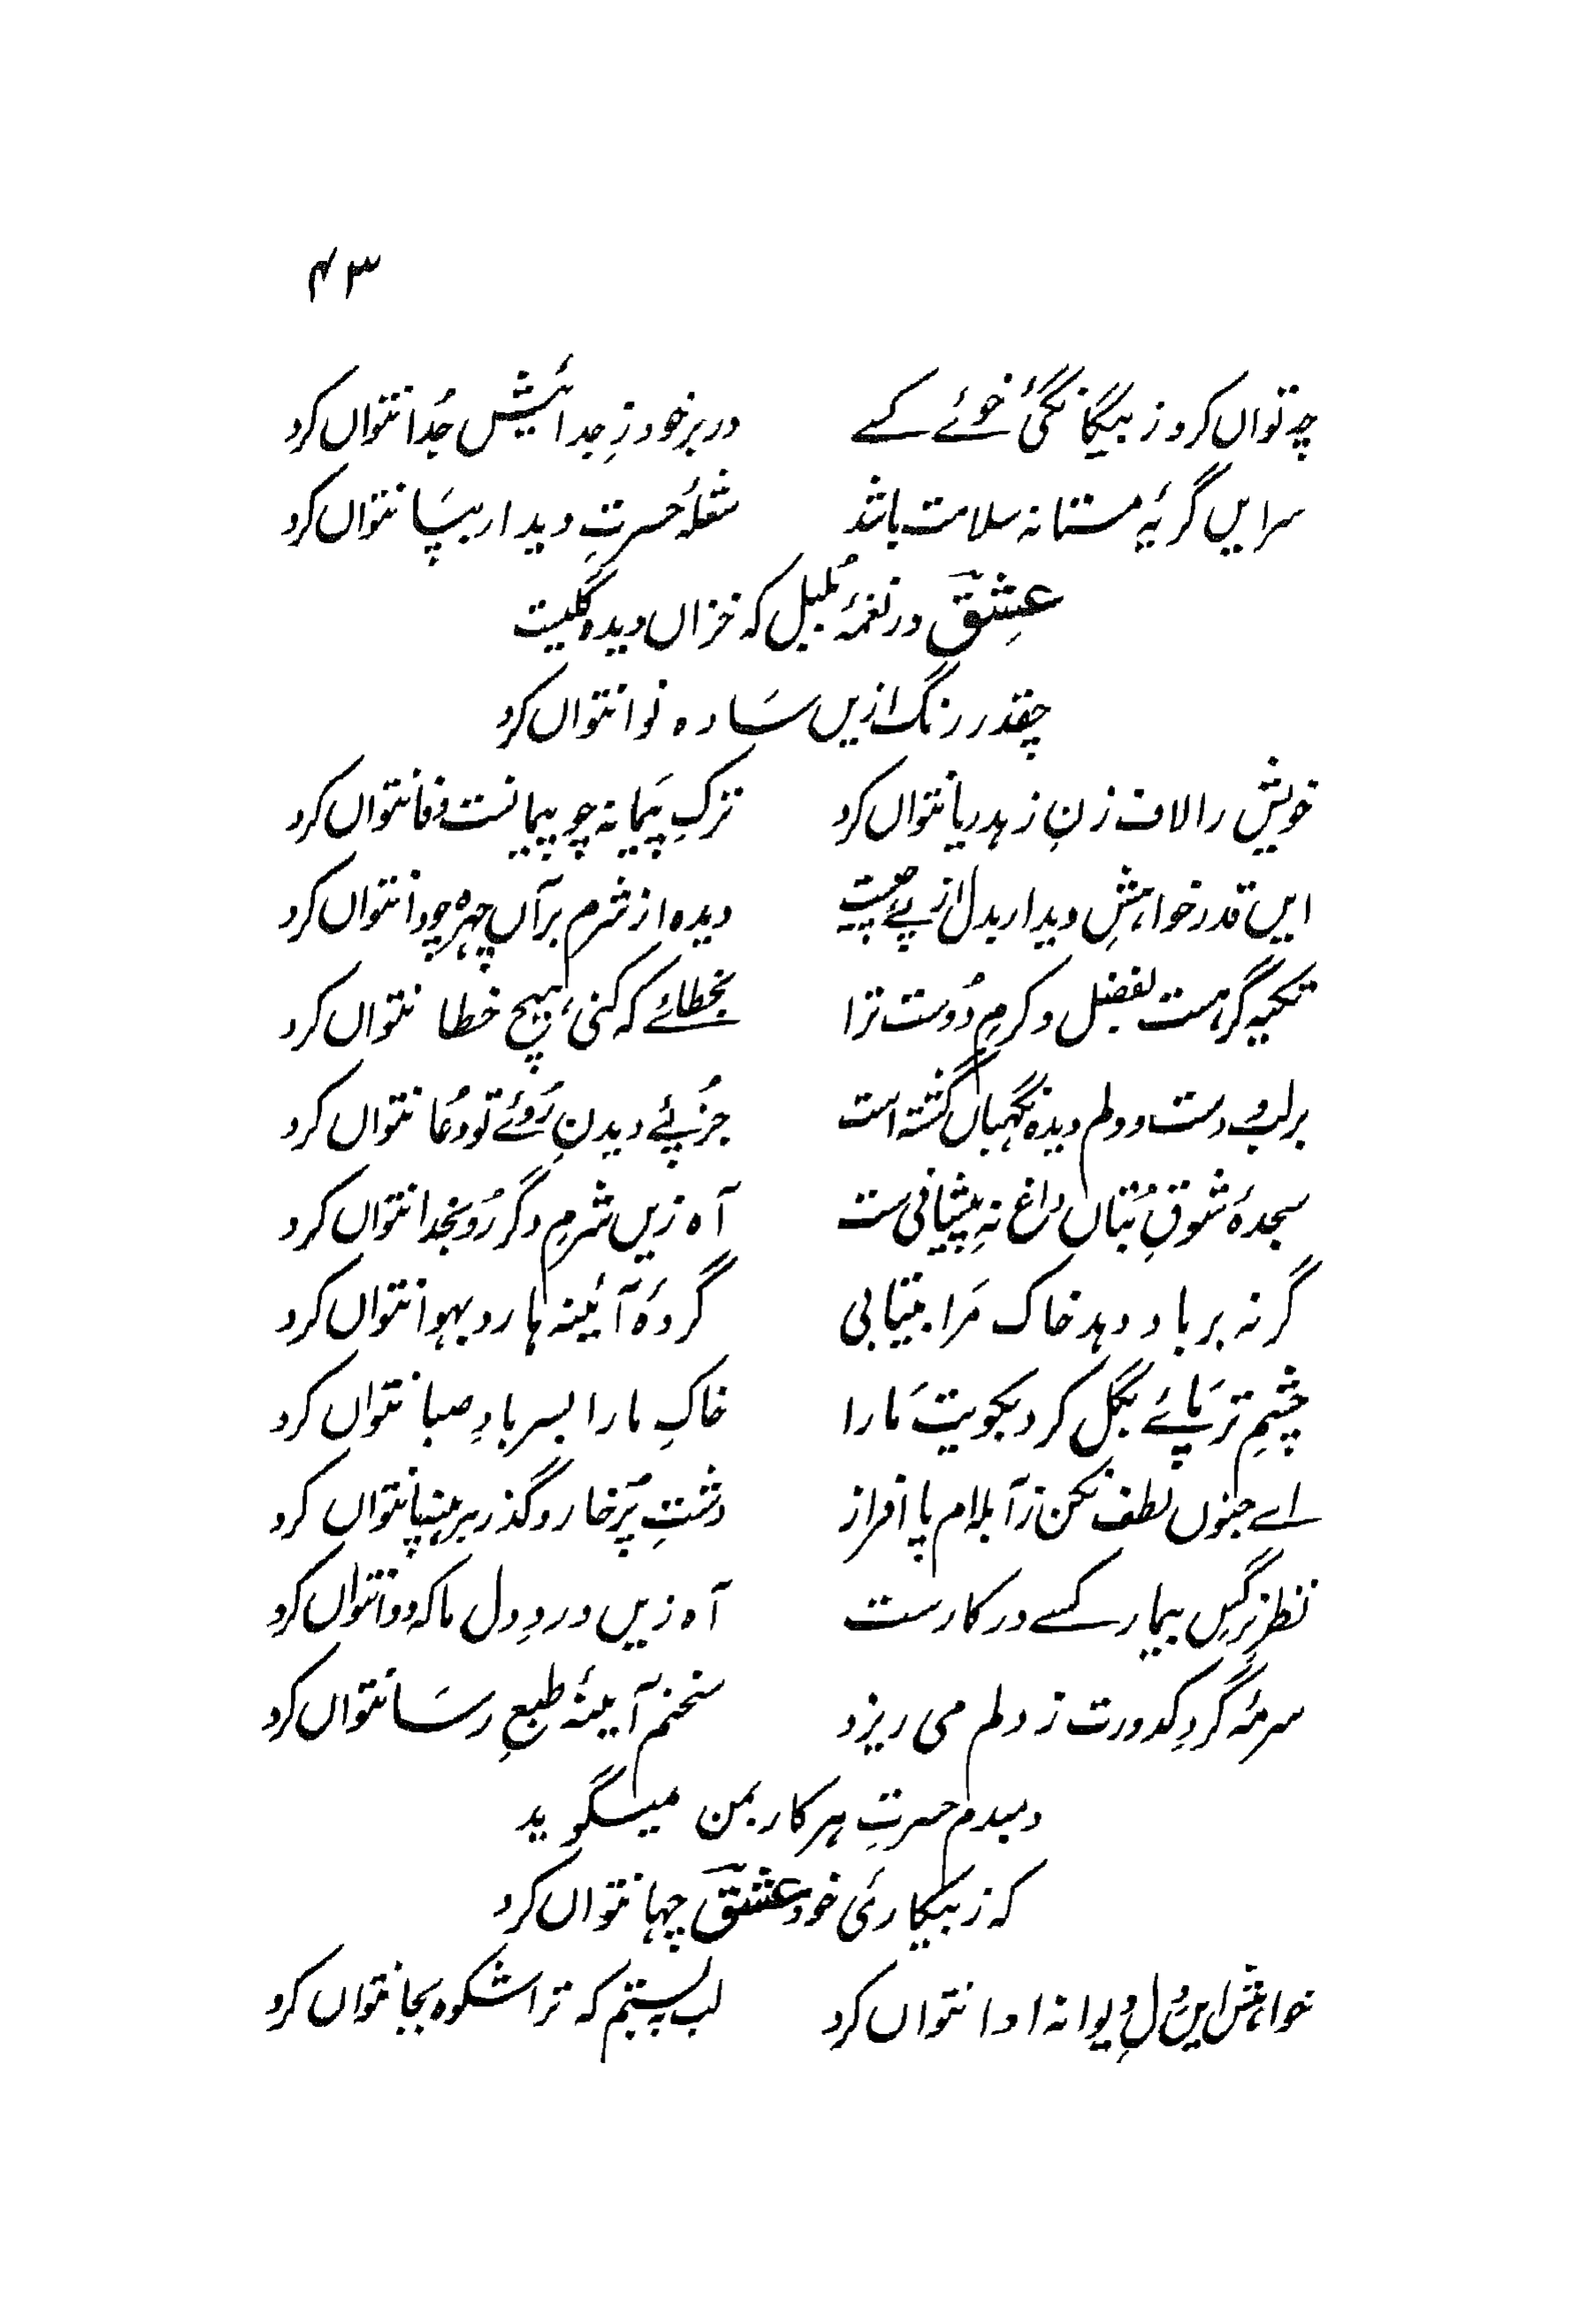 ۴۳
چہ تواں کرد ز بیگانگیٔ خوئے کسے در بر خود زِ جدائیش جُدا نتواں کرد
سر ایں گریۂ مستانہ سلامت باشد شعلۂ حسرتِ دیدار بپا نتواں کرد
عِشقؔ در نغمۂ بُلبل کہ خزاں دیدہ گلیست
چقدر رنگ ازیں سَادہ نوا نتواں کرد
خویش را لاف زنِ زہد ریا نتواں کرد ترکِ پَیمانہ چو پیمانست وفا نتواں کرد
ایں قدر خواہشِ دیدار بدل از پئے چیست دیدہ از شرم بر آں چہرہ چو وا نتواں کرد
تکیہ گر ہست بفضل و کرمِ دُوست ترا بخطائے کہ کنی، ہیچ خطا نتواں کرد
بر لب و دست و دلم دیدہ نگہباں گشتہ است جُز پئے دیدنِ رُوئے تو دعُا نتواں کرد
سجدۂ شوقِ بُتاں داغ نہِ پیشانی ست آہ زیں شرمِ دگر رُو بخدا نتواں کرد
گر نہ برباد دہد خاک مَرا بیتابی گردۂ آئینہ ہا رو بہوا نتواں کرد
چشمِ تر پَائے بگل کرد بکویت مَارا خاکِ مارا بسر بادِ صبا نتواں کرد
اے جنوں لطف بکن ز آبلہ ام پا افراز دشتِ پُرخار و گذر برہنہ پا نتواں کرد
نظرِ نرگسِ بیمار کسے درکارست آہ زیں دردِ دل ما کہ دوا نتواں کرد
سرمۂ گردِ کدورت ز دلم می ریزد سخنم آیئنۂ طبعِ رسَا نتواں کرد
دمبدم حسرتِ ہر کار بمن میگوید
کہ ز بیکاریٔ خود عشقؔ چہا نتواں کرد
خواہش ایں دلِ دیوانہ ادا نتواں کرد لب ببستیم کہ ترا شکوہ بجا نتواں کرد